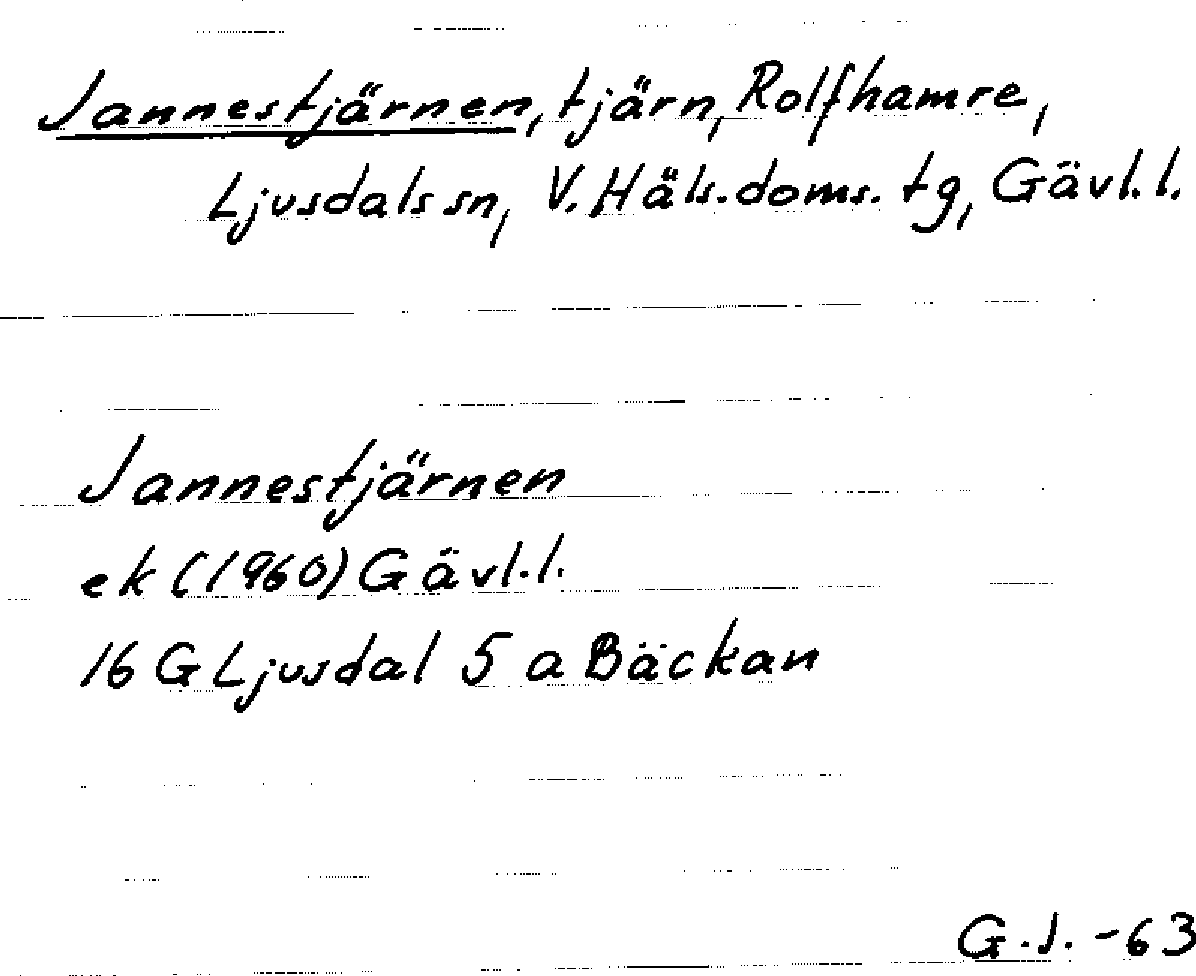 Jannestjärnen, tjärn, Rolfhamre,
Ljusdals sn, V. Häls. doms. tg, Gävl. l.
Jannestjärnen
ek (1960) Gävl. l.
16 G Ljusdal 5 a Bäckan
G. J. -63